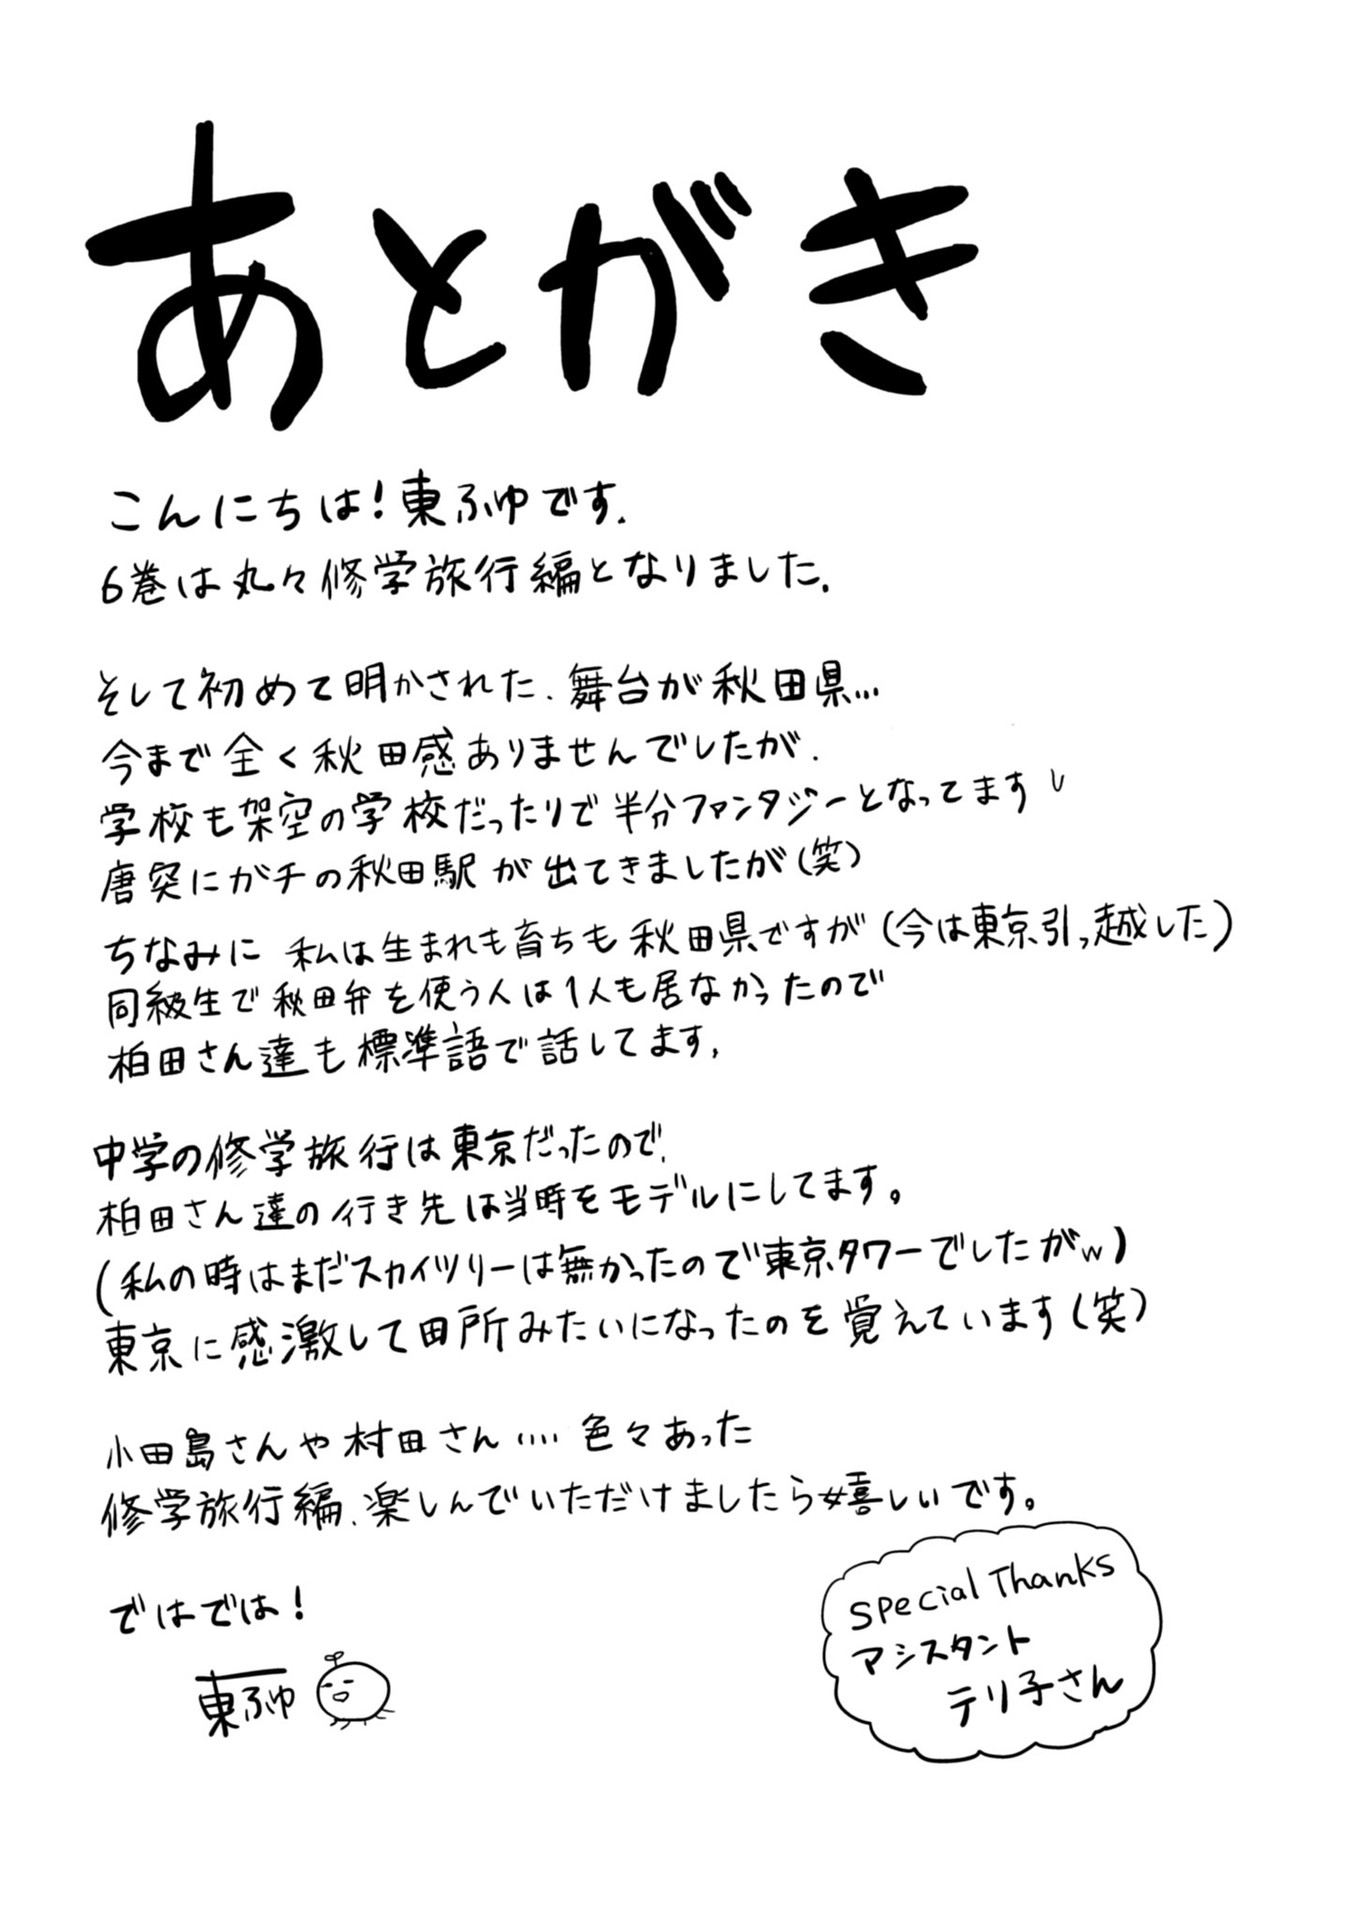 あとがき
こんにちは！東ふゆです.
6巻は丸々修学旅行編となりました.
そして初めて明かされた、舞台が秋田県…
今まで全く秋田感ありませんでしたが、
学校も架空の学校だったりで半分ファンタジーとなってます
唐突にガチの秋田駅が出てきましたが(笑)
ちなみに 私は生まれも育ちも秋田県ですが(今は東京引っ越した)
同級生で秋田弁を使う人は1人も居なかったので
柏田さん達も標準語で話してます.
中学の修学旅行は東京だったので、
柏田さん達の行き先は当時をモデルにしてます。
(私の時はまだスカイツリーは無かったので東京タワーでしたがw)
東京に感激して田所みたいになったのを覚えています(笑)
小田島さんや村田さん‥‥色々あった
修学旅行編、楽しんでいただけましたら嬉しいです。
ではでは！
東ふゆ
Special Thanks
アシスタント
テリ子さん